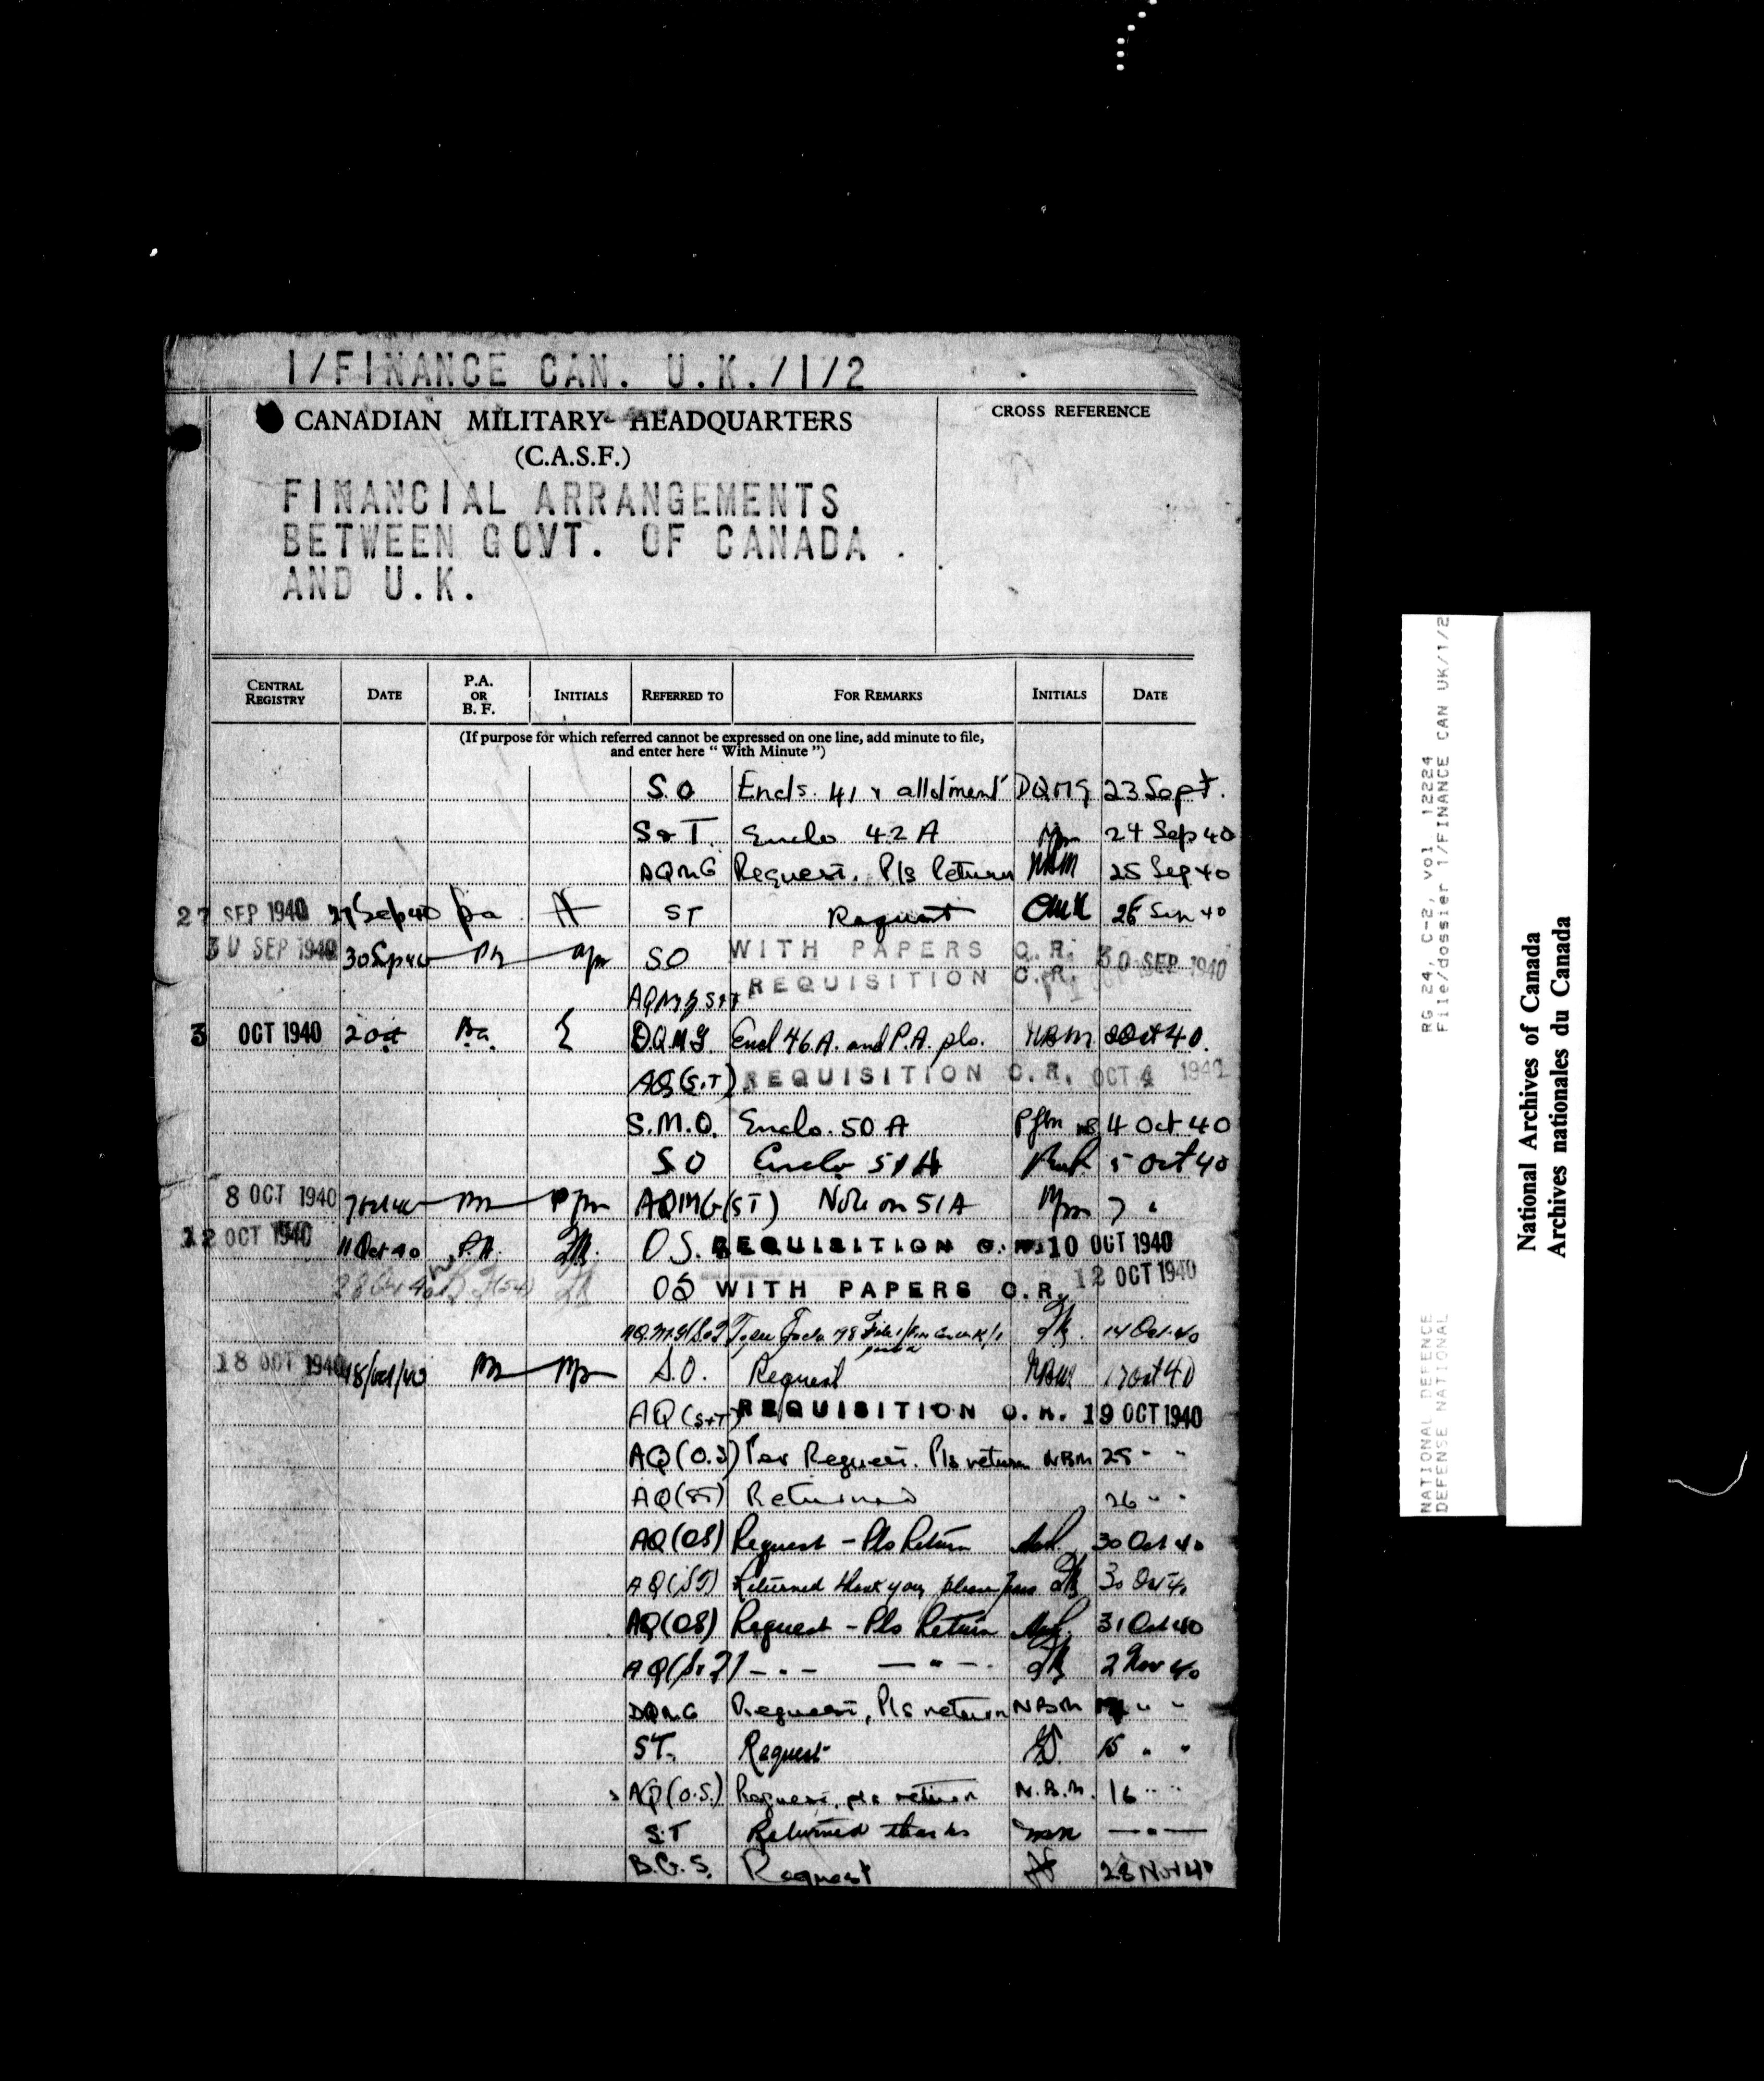 1/FINANCE CAN. U.K./1/2
CANADIAN MILITARY HEADQUARTERS
(C.A.S.F.)
CROSS REFERENCE
FINANCIAL ARRANGEMENTS
BETWEEN GOVT. OF CANADA
AND U.K.
CENTRAL REGISTRY DATE P.A. OR B.F. INITIALS REFERRED TO FOR REMARKS INITIALS DATE
(If purpose for which referred cannot be expressed on one line, add minute to file,
and enter here "With Minute")
S.O Encls. 41 & allotment DQMG 23 Sept.
S & T. Enclo 42A 24 Sep 40
AQMG Request. Pls return NBM 25 Sep 40
27 SEP 1940 27 Sep 40 pa ST Request 26 Sep 40
30 SEP 1940 30 Sep 40 SO WITH PAPERS C.R. 30 SEP 1940
AQMG S+T REQUISITION C.R.
3 OCT 1940 2 Oct P.a. D.Q.M.G. Encl 46A. and P.A. pls. NBM 2 Oct 40.
AQ(S.T) REQUISITION C.R. OCT 4 1940
S.M.O. Enclo. 50A 4 Oct 40
SO Enclo 51A 5 Oct 40
8 OCT 1940 AQMG(ST) Note on 51A 7 "
12 OCT 1940 11 Oct 40 P.A. O.S. REQUISITION C.R. 10 OCT 1940
OS WITH PAPERS C.R. 12 OCT 1940
14 Oct 40
18 OCT 1940 18/Oct/40 S.O. Request NBM 17 Oct 40
AQ(S+T) REQUISITION C.R. 19 OCT 1940
AQ(O.S) Per Request. Pls return NBM 25 " "
AQ(ST) Returned 26 " "
AQ(OS) Request - Pls Return 30 Oct 40
AQ(ST) Returned thank you, please 30 Oct 40
AQ(OS) Request - Pls Return 31 Oct 40
AQ(S+T) - " - - " - 2 Nov 40
DQMG Request, Pls return NBM " "
ST. Request 15 " "
AQ(O.S.) Request, pls return N.B.M. 16 " "
S.T Returned thanks - " -
B.G.S. Request 28 Nov 40
RG 24, C-2, vol 12224
File/dossier 1/FINANCE CAN UK/1/2
NATIONAL DEFENCE
DEFENSE NATIONAL
National Archives of Canada
Archives nationales du Canada